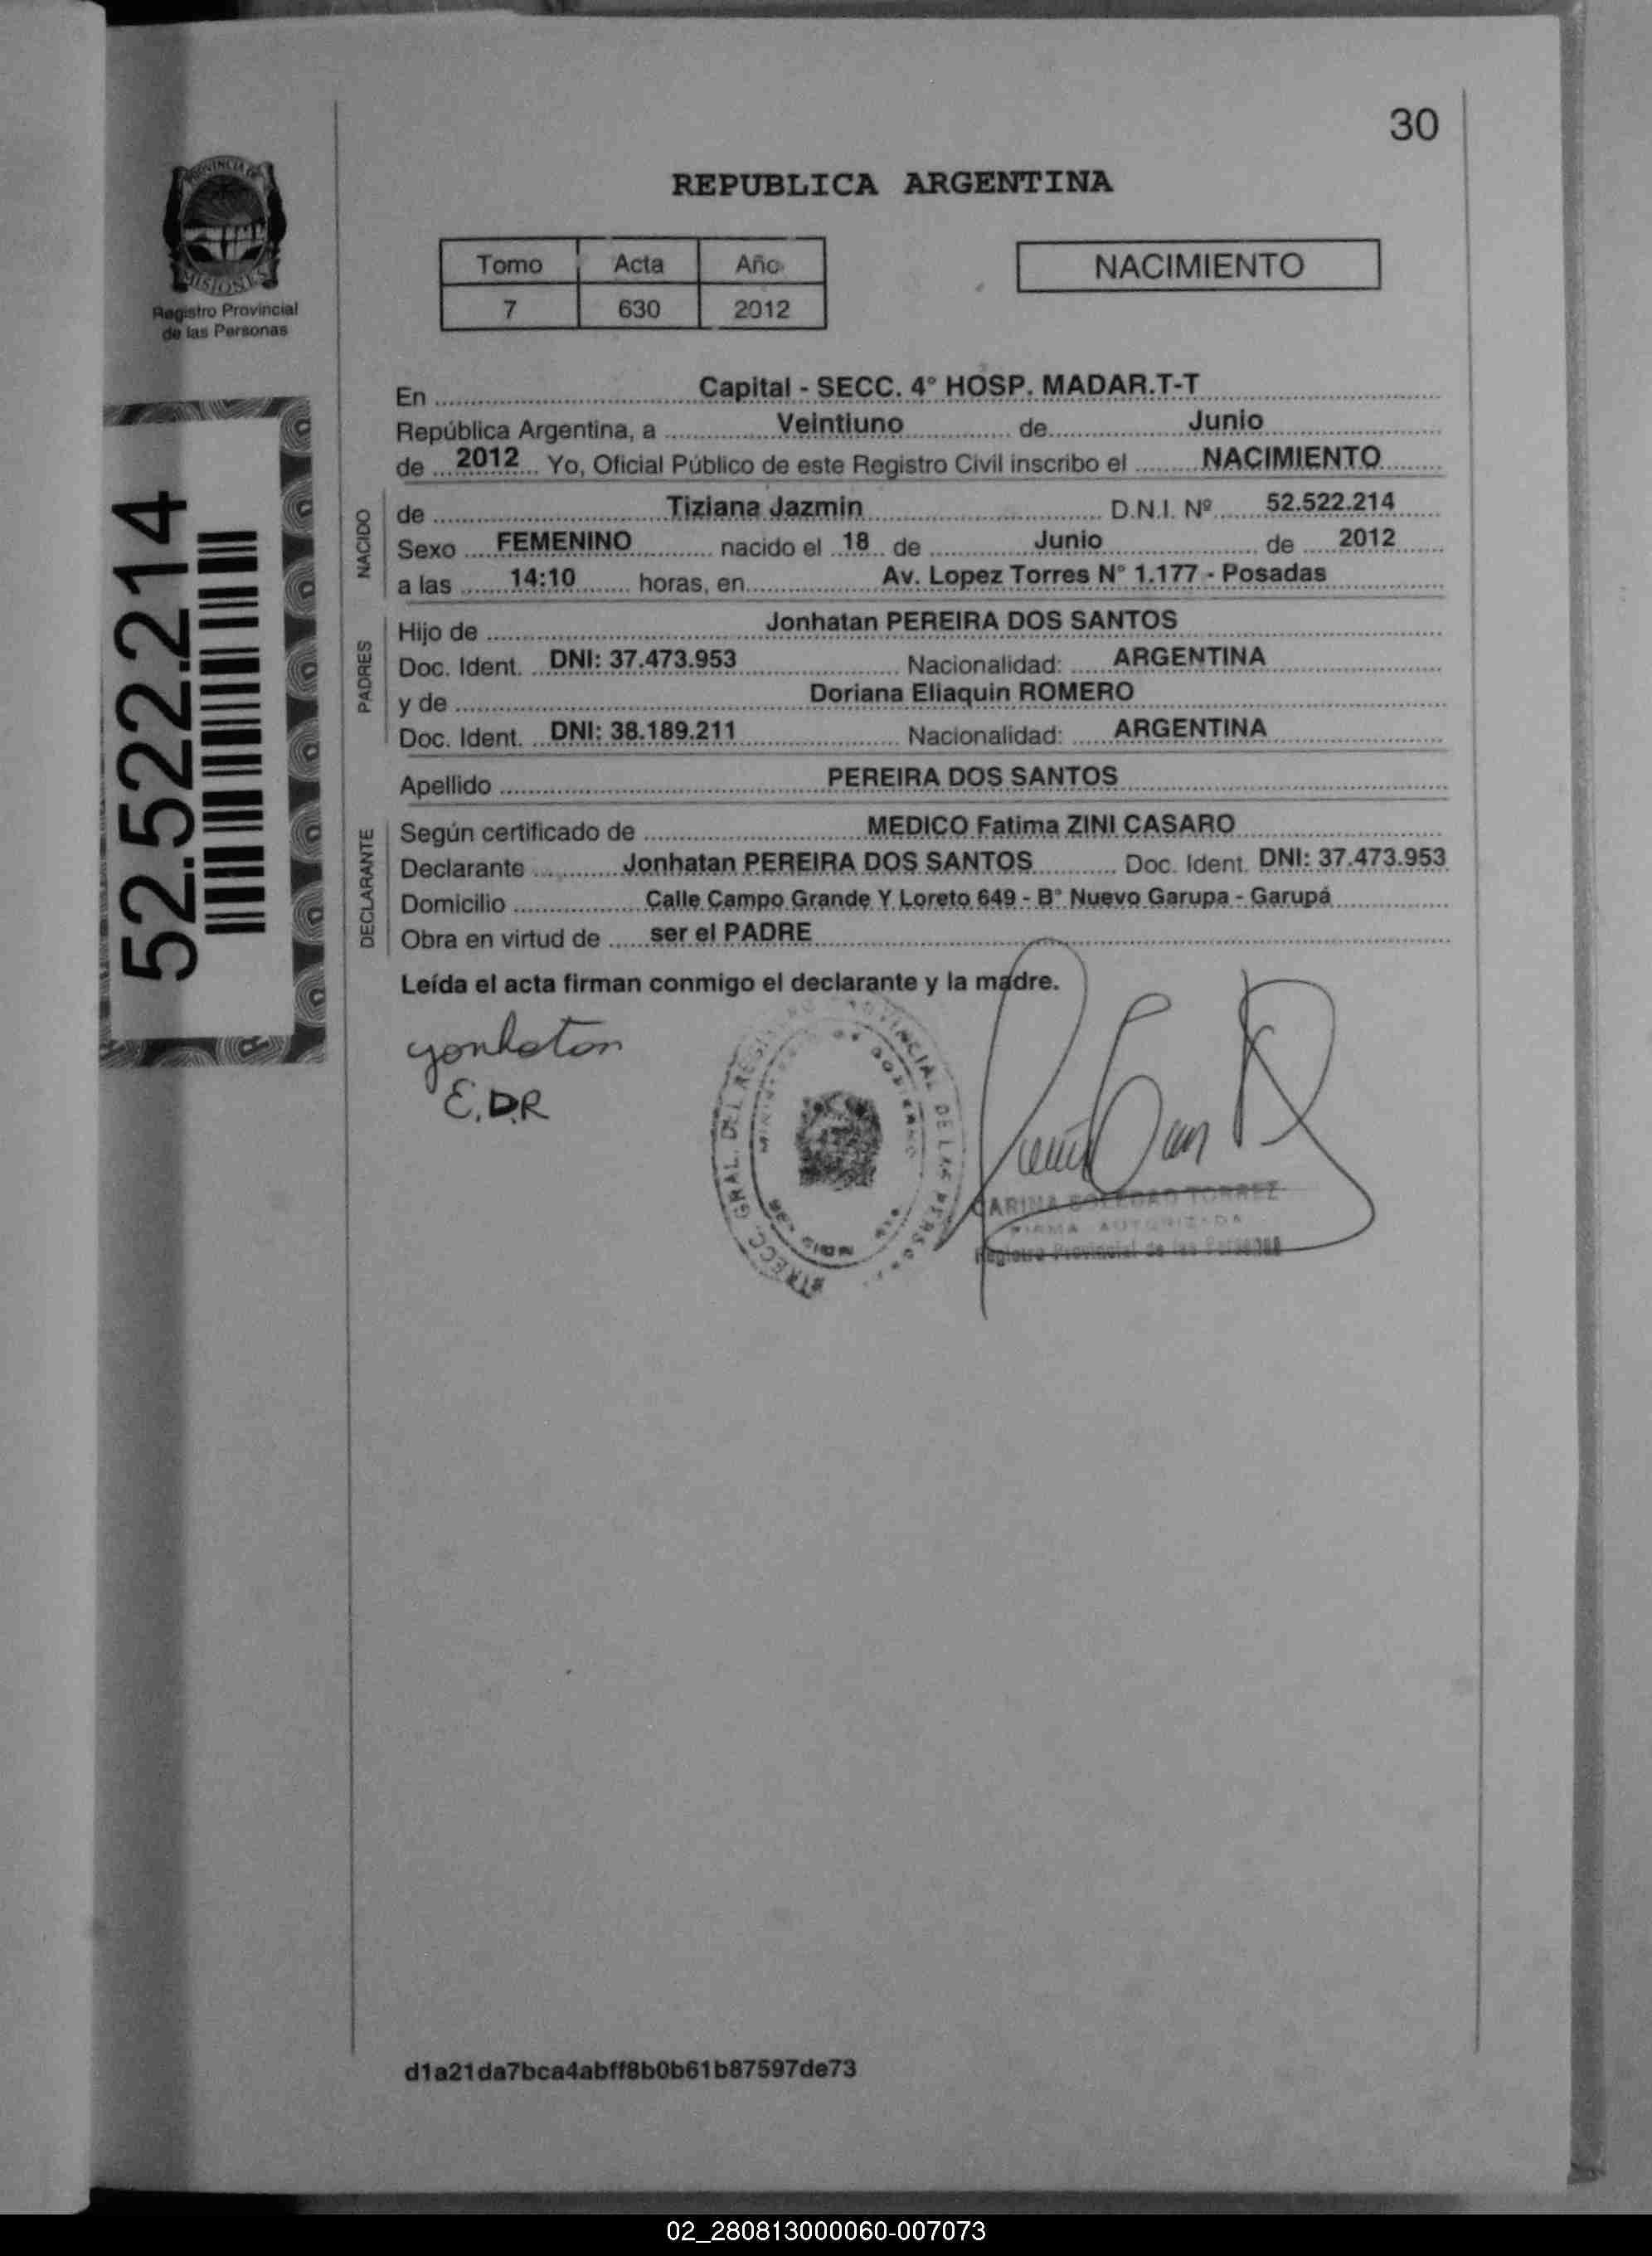 30
PROVINCIA DE
MISIONES
Registro Provincial
de las Personas
REPUBLICA ARGENTINA
Tomo Acta Año
7 630 2012
NACIMIENTO
52.522.214
En Capital - SECC. 4° HOSP. MADAR.T-T
República Argentina, a Veintiuno de Junio
de 2012 Yo, Oficial Público de este Registro Civil inscribo el NACIMIENTO
NACIDO
de Tiziana Jazmin D.N.I. Nº 52.522.214
Sexo FEMENINO nacido el 18 de Junio de 2012
a las 14:10 horas, en Av. Lopez Torres N° 1.177 - Posadas
PADRES
Hijo de Jonhatan PEREIRA DOS SANTOS
Doc. Ident. DNI: 37.473.953 Nacionalidad: ARGENTINA
y de Doriana Eliaquin ROMERO
Doc. Ident. DNI: 38.189.211 Nacionalidad: ARGENTINA
Apellido PEREIRA DOS SANTOS
DECLARANTE
Según certificado de MEDICO Fatima ZINI CASARO
Declarante Jonhatan PEREIRA DOS SANTOS Doc. Ident. DNI: 37.473.953
Domicilio Calle Campo Grande Y Loreto 649 - B° Nuevo Garupa - Garupá
Obra en virtud de ser el PADRE
Leída el acta firman conmigo el declarante y la madre.
yonhatan
E.D.R
GRAL. DEL PROVINCIAL DE LAS
CARINA SOLEDAD TORREZ
FIRMA AUTORIZADA
Registro Provincial de las Personas
d1a21da7bca4abff8b0b61b87597de73
02_280813000060-007073